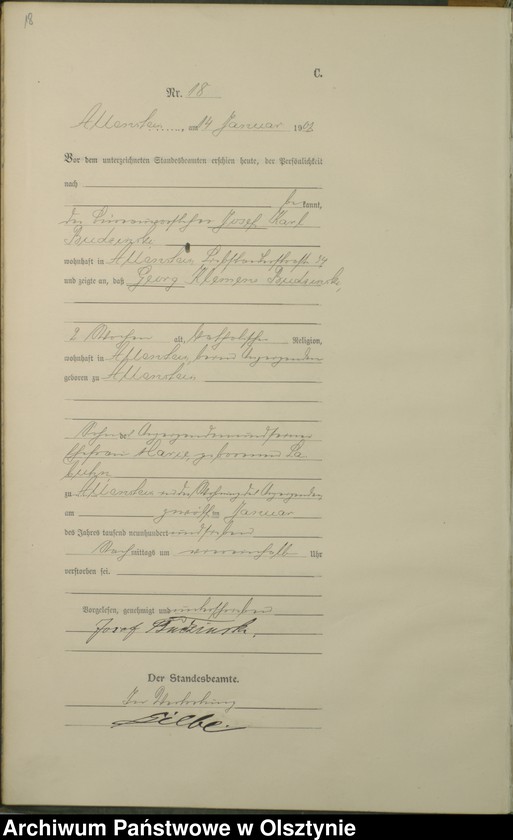 18
C.
Nr. 18
Allenstein, am 14 Januar 190
Vor dem unterzeichneten Standesbeamten erschien heute, der Persönlichkeit
nach
be kannt,
der Josef Karl
wohnhaft in Allenstein 14
und zeigte an, daß Georg Klemens
2 Wochen alt, katholischer Religion,
wohnhaft in Allenstein, beim Anzeigenden
geboren zu Allenstein
Sohn des Anzeigenden und seiner
Ehefrau Marie, geborenen
zu Allenstein in der Wohnung des Anzeigenden
am zwölften Januar
des Jahres tausend neunhundert und sieben
Nach mittags um Uhr
verstorben sei.
Vorgelesen, genehmigt und unterschrieben
Josef
Der Standesbeamte.
In Vertretung
Archiwum Państwowe w Olsztynie